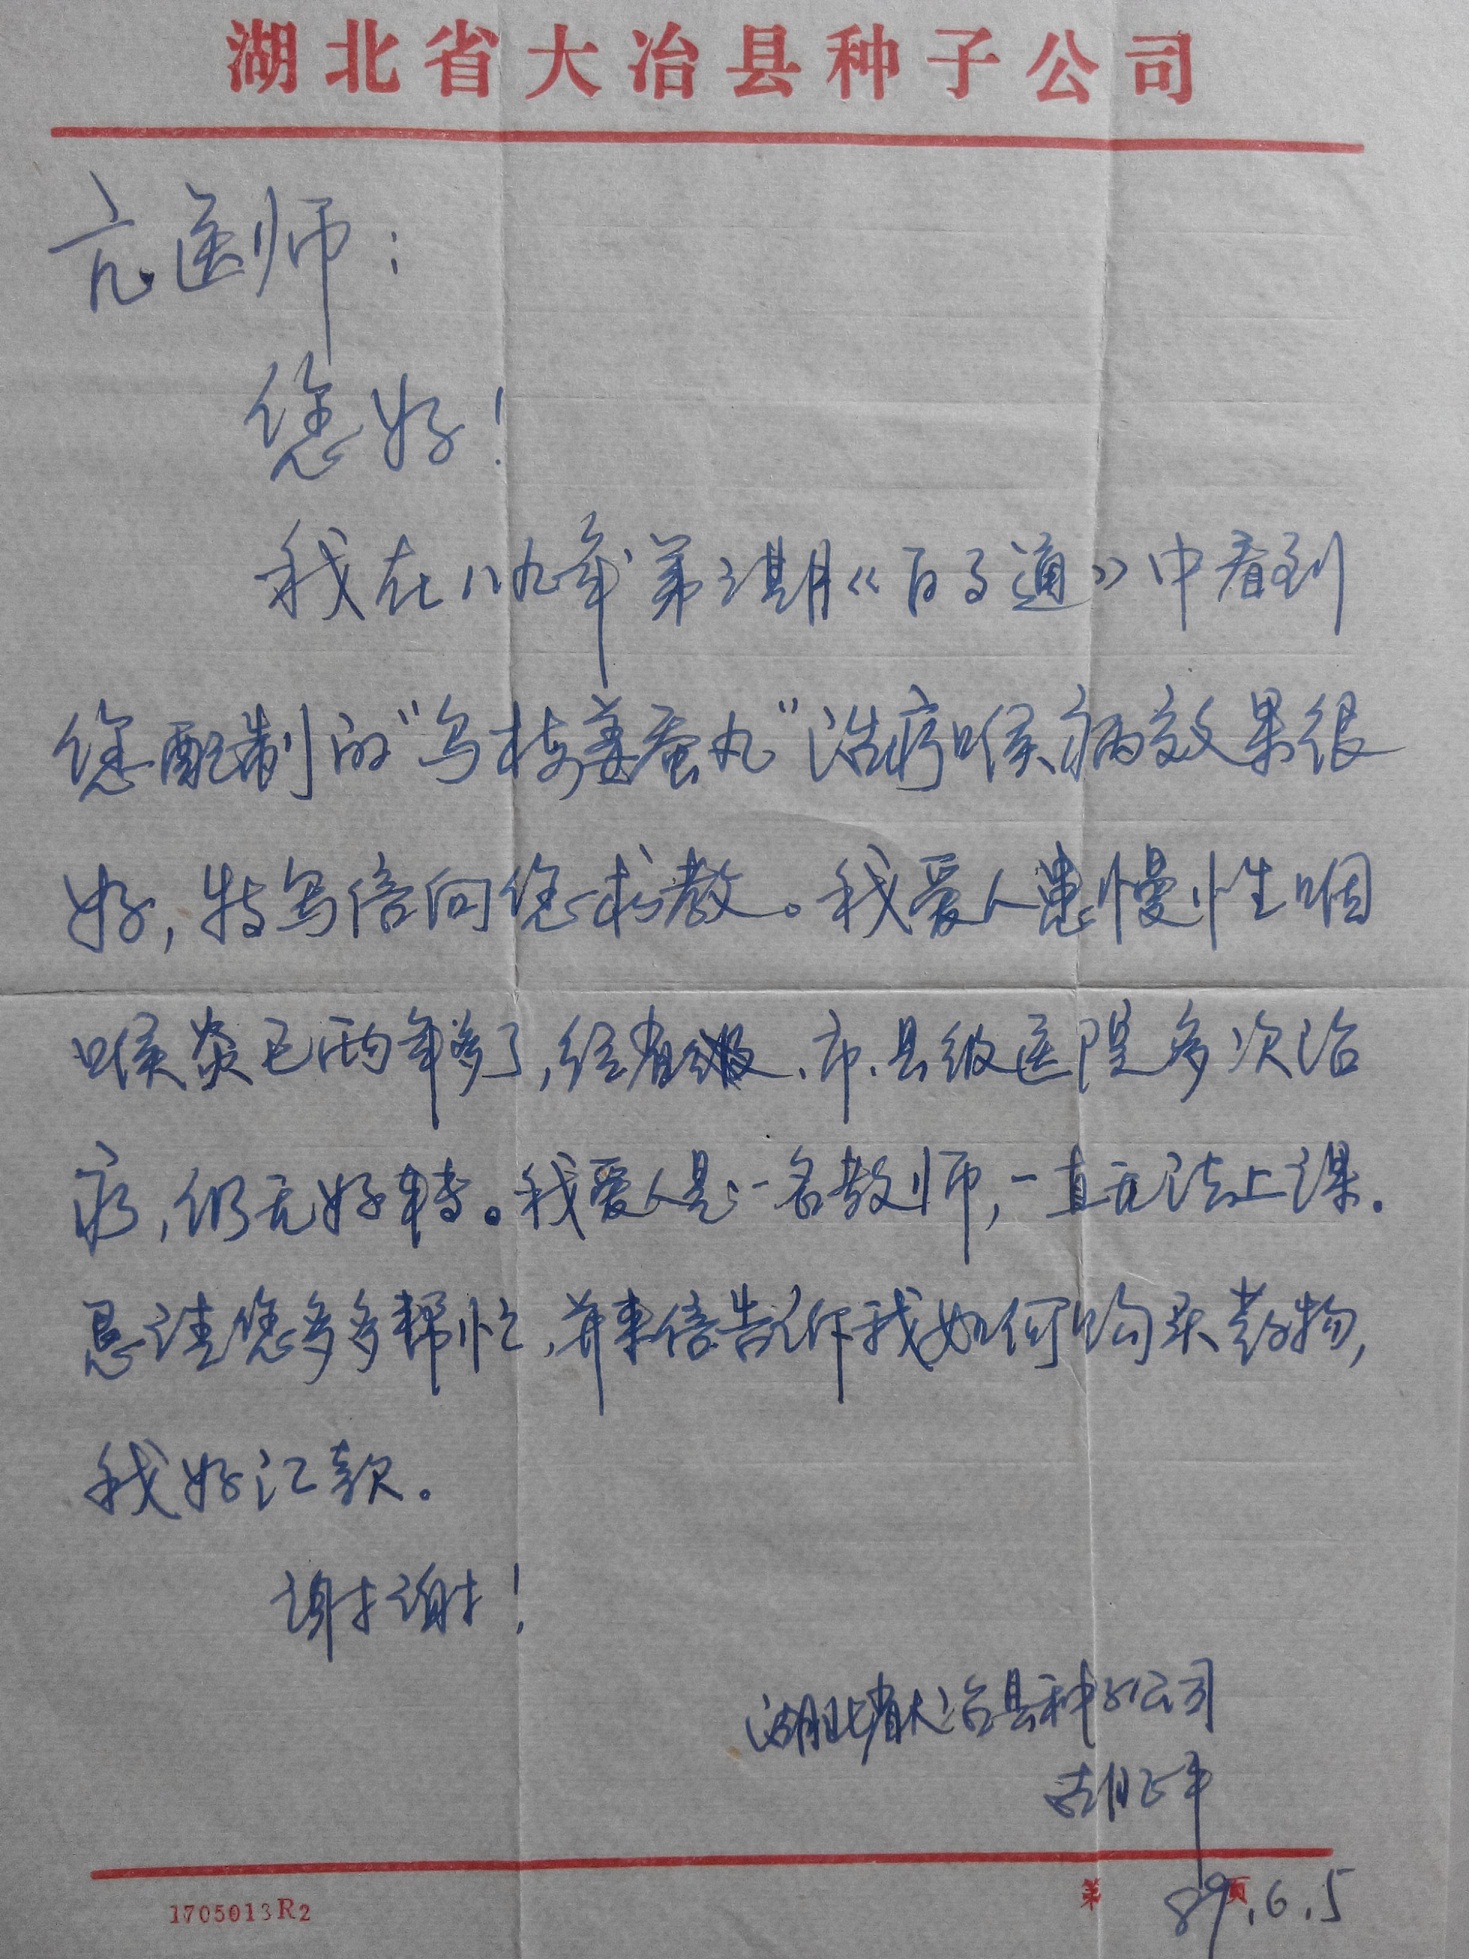 湖北省大冶县种子公司
亢医师：
您好！
我在八九年第3期《百事通》中看到
您配制的“乌梅姜蚕丸”治疗喉病效果很
好，特写信向您求教。我爱人患慢性咽
喉炎已两年多了，经省级、市、县级医院多次治
疗，仍无好转。我爱人是一名教师，一直无法上课.
恳请您多多帮忙，并来信告诉我如何购买药物，
我好汇款。
谢谢！
湖北省大冶县种子公司
胡正平
89.6.5
1705013R2 第 页